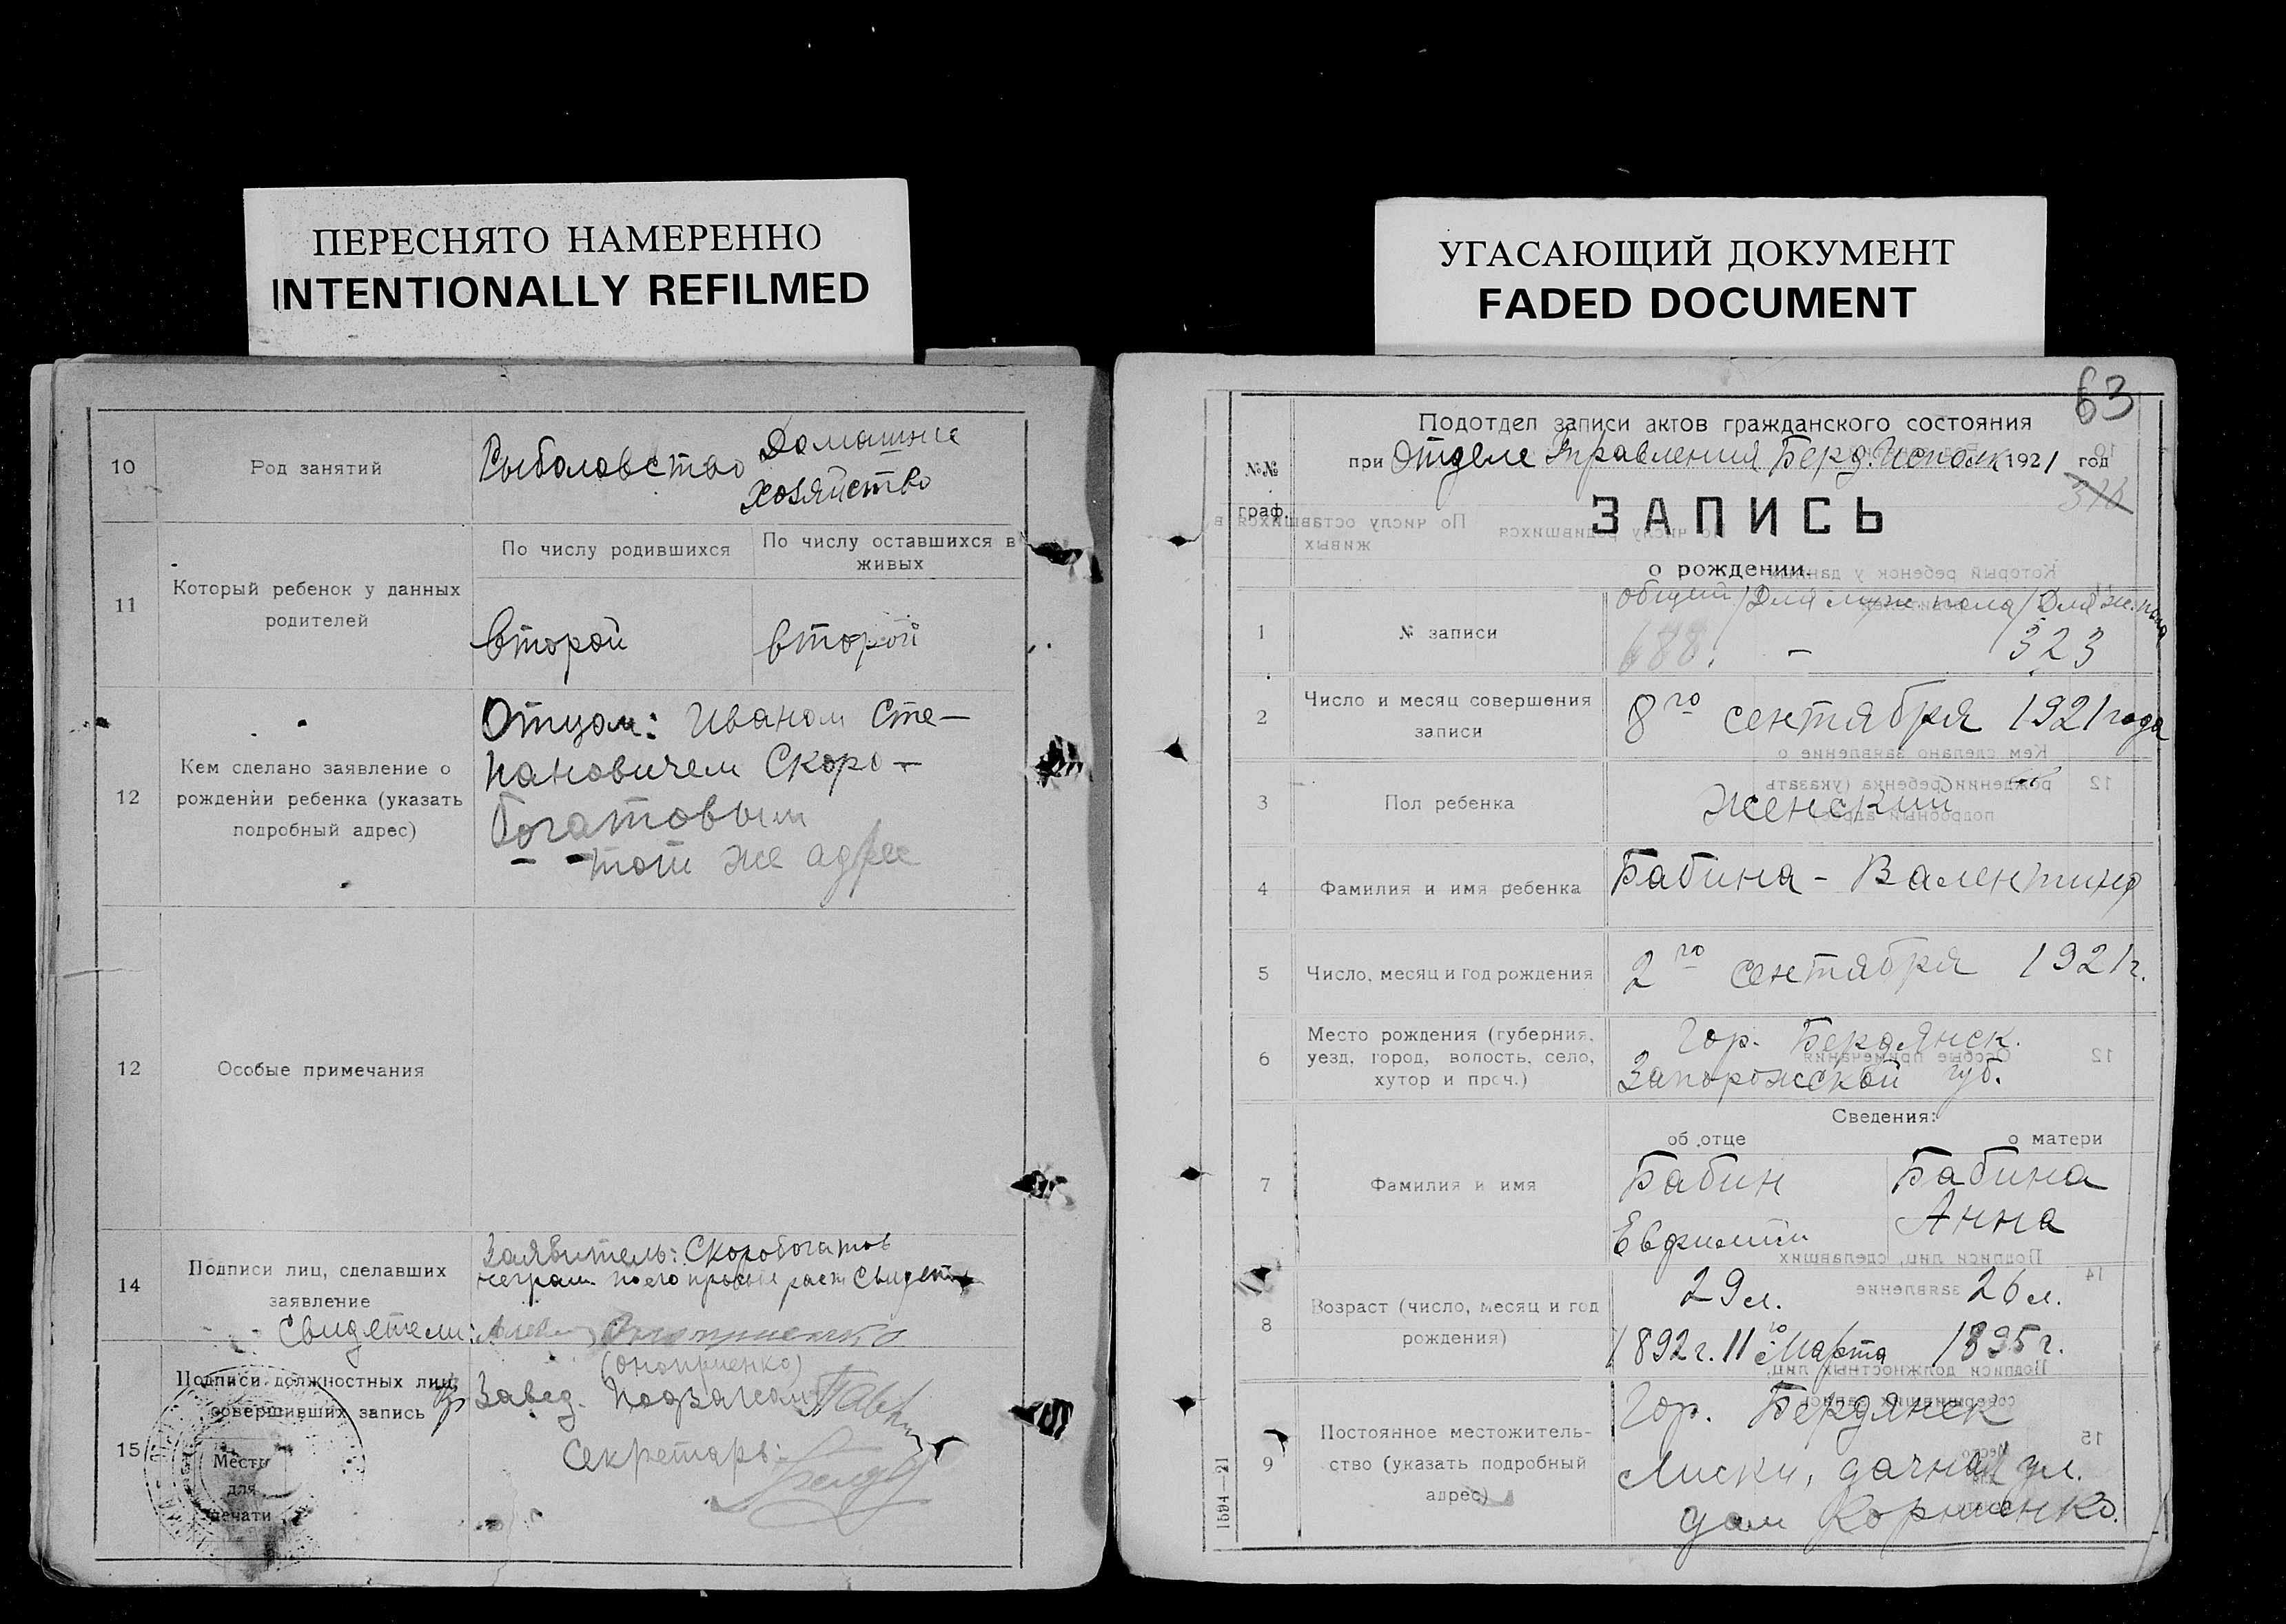 ПЕРЕСНЯТО НАМЕРЕННО
INTENTIONALLY REFILMED
УГАСАЮЩИЙ ДОКУМЕНТ
FADED DOCUMENT
10
Род занятий
Рыболовство
Домашнее
хозяйство
11
Который ребенок у данных
родителей
По числу родившихся
По числу оставшихся в
живых
второй
второй
12
Кем сделано заявление о
рождении ребенка (указать
подробный адрес)
Отцом: Иваном Сте-
пановичем Скоро-
богатовым
тот же адрес
12
Особые примечания
14
Подписи лиц, сделавших
заявление
Заявитель: Скоробогатов
неграм. по его просьбе расп. Свидет.
Свидетели:
(Оноприенко)
15
Подписи должностных лиц,
совершивших запись
Место
для
печати
Завед. Подзагсом
Секретарь:
63
Подотдел записи актов гражданского состояния
при Отделе Управления Берд. Исполк 1921 год
№№
граф.
ЗАПИСЬ
о рождении.
общий / Для муж. пола / Для ж. пола
1
№ записи
688. – 323
2
Число и месяц совершения
записи
8го сентября 1921 года
3
Пол ребенка
Женский
4
Фамилия и имя ребенка
Бабина - Валентина
5
Число, месяц и год рождения
2го сентября 1921 г.
6
Место рождения (губерния,
уезд, город, волость, село,
хутор и проч.)
Гор. Бердянск.
Запорожской губ.
Сведения:
об отце
о матери
7
Фамилия и имя
Бабин
Евфимий
Бабина
Анна
8
Возраст (число, месяц и год
рождения)
29 л.
26 л.
1892 г. 11го Марта
1895 г.
9
Постоянное местожитель-
ство (указать подробный
адрес)
Гор. Бердянск
Лиски, дачная ул.
дом Корниенко.
1594—21